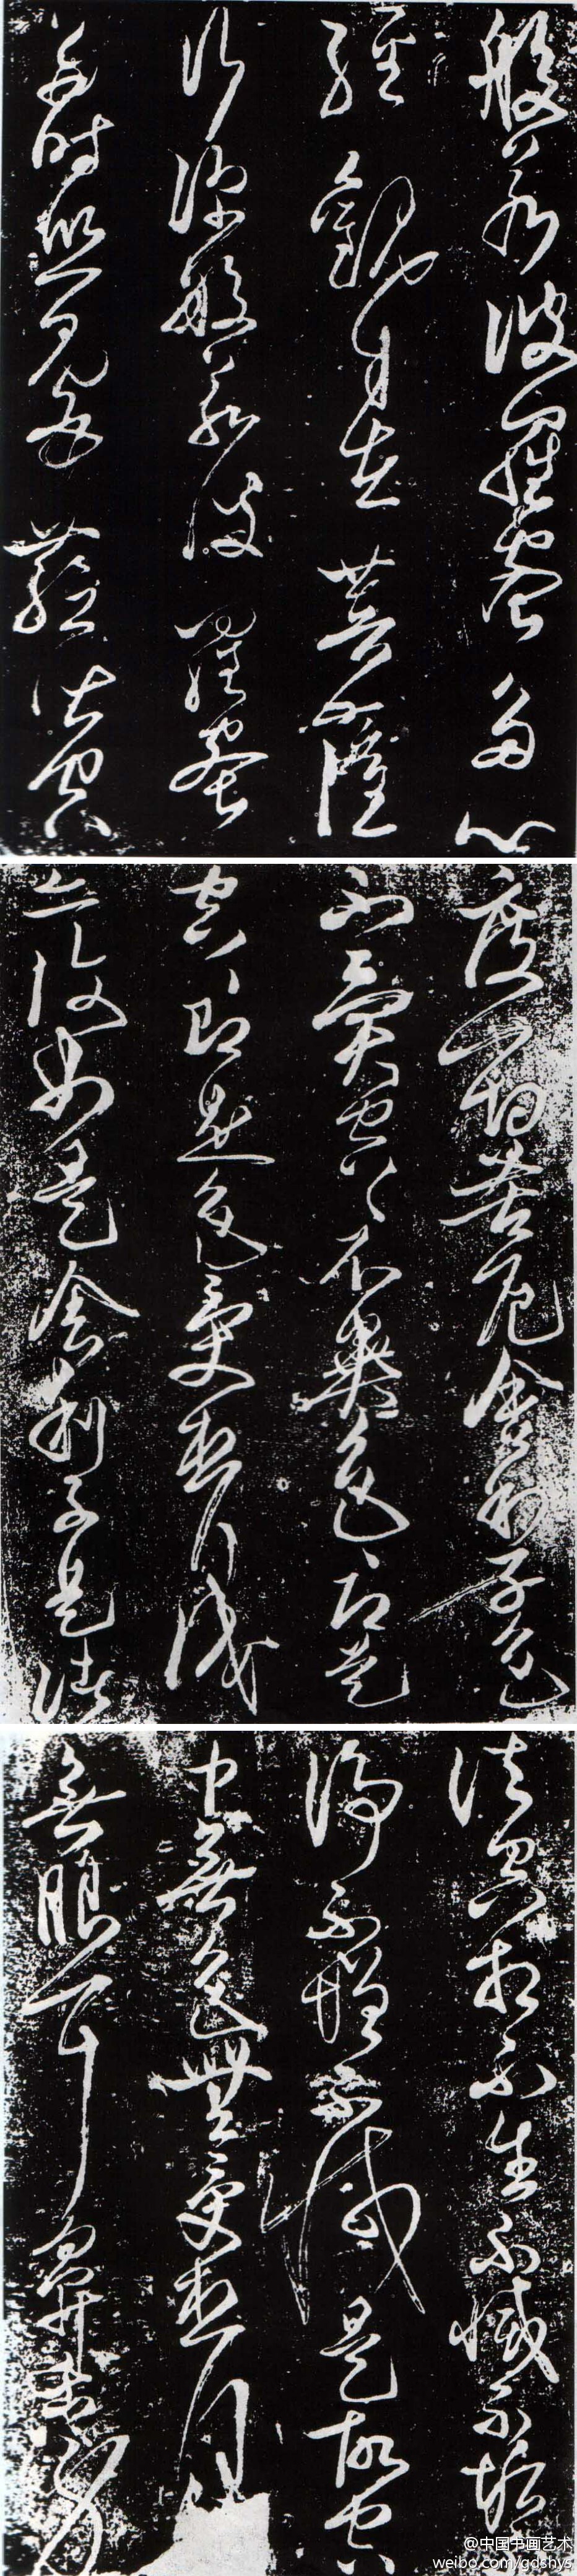 般若波羅蜜多心
經觀自在菩薩
行深般若波羅蜜
多時照見五蘊皆空
度一切苦厄舍利子色
不異空〻不異色〻即是
空〻即是色受想行識
亦復如是舍利子是諸
法空相不生不滅不垢不
淨不增不減是故空
中無色無受想行
無眼耳鼻舌身
@中国书画艺术
weibo.com/gdshys